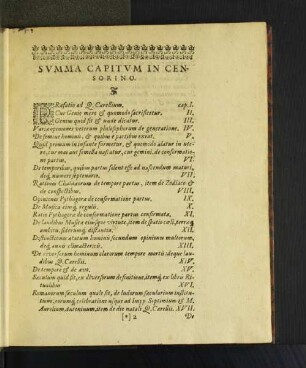 SVMMA CAPITVM IN CEN-
SORINO.
PRæfatio ad Q. Cerellium. cap. I.
Cur Genio mero & quomodo sacrificetur. II,
Genius quid sit & unde dicatur. III.
Variæ opiniones veterum philosophorum de generatione. IV.
De semine hominis, & quibus è partibus exeat. V,
Quid primum in infante formetur, & quomodo alatur in ute-
ro, cur mas aut femella nascatur, cur gemini, de conformatio-
ne partus. VI.
De temporibus, quibus partus solent esse ad nascendum maturi,
deq́ numero septenario. VII.
Rationes Chaldæorum de tempore partus, item de Zodiaco &
de conspectibus. VIII,
Opinio Pythagoræ de conformatione partus. IX.
De Musica eiusq́ regulis. X.
Ratio Pythagoræ de conformatione partus confirmata, XI.
De laudibus Musicæ eiusque virtute, item de spatio cœli, terræ
ambitu, siderumq́ distantia. XII.
Distinctiones ætatum hominis secundum opiniones multorum,
deq́ annis climactericis. XIII.
De diversorum hominum clarorum tempore mortis deque laudi-
bus Q. Cerellii. XIV.
De tempore & de ævo. XV.
Seculum quid sit, ex diversorum definitione, itemq́ ex libris Ri-
tualibus XVI.
Romanorum seculum quale sit, de ludorum secularium institu-
tione, eorumq́ celebratione usque ad Impp. Septimium & M.
Aurelium Antoninum, item de die natali Q. Cerellii. XVII.
[*] 2 De